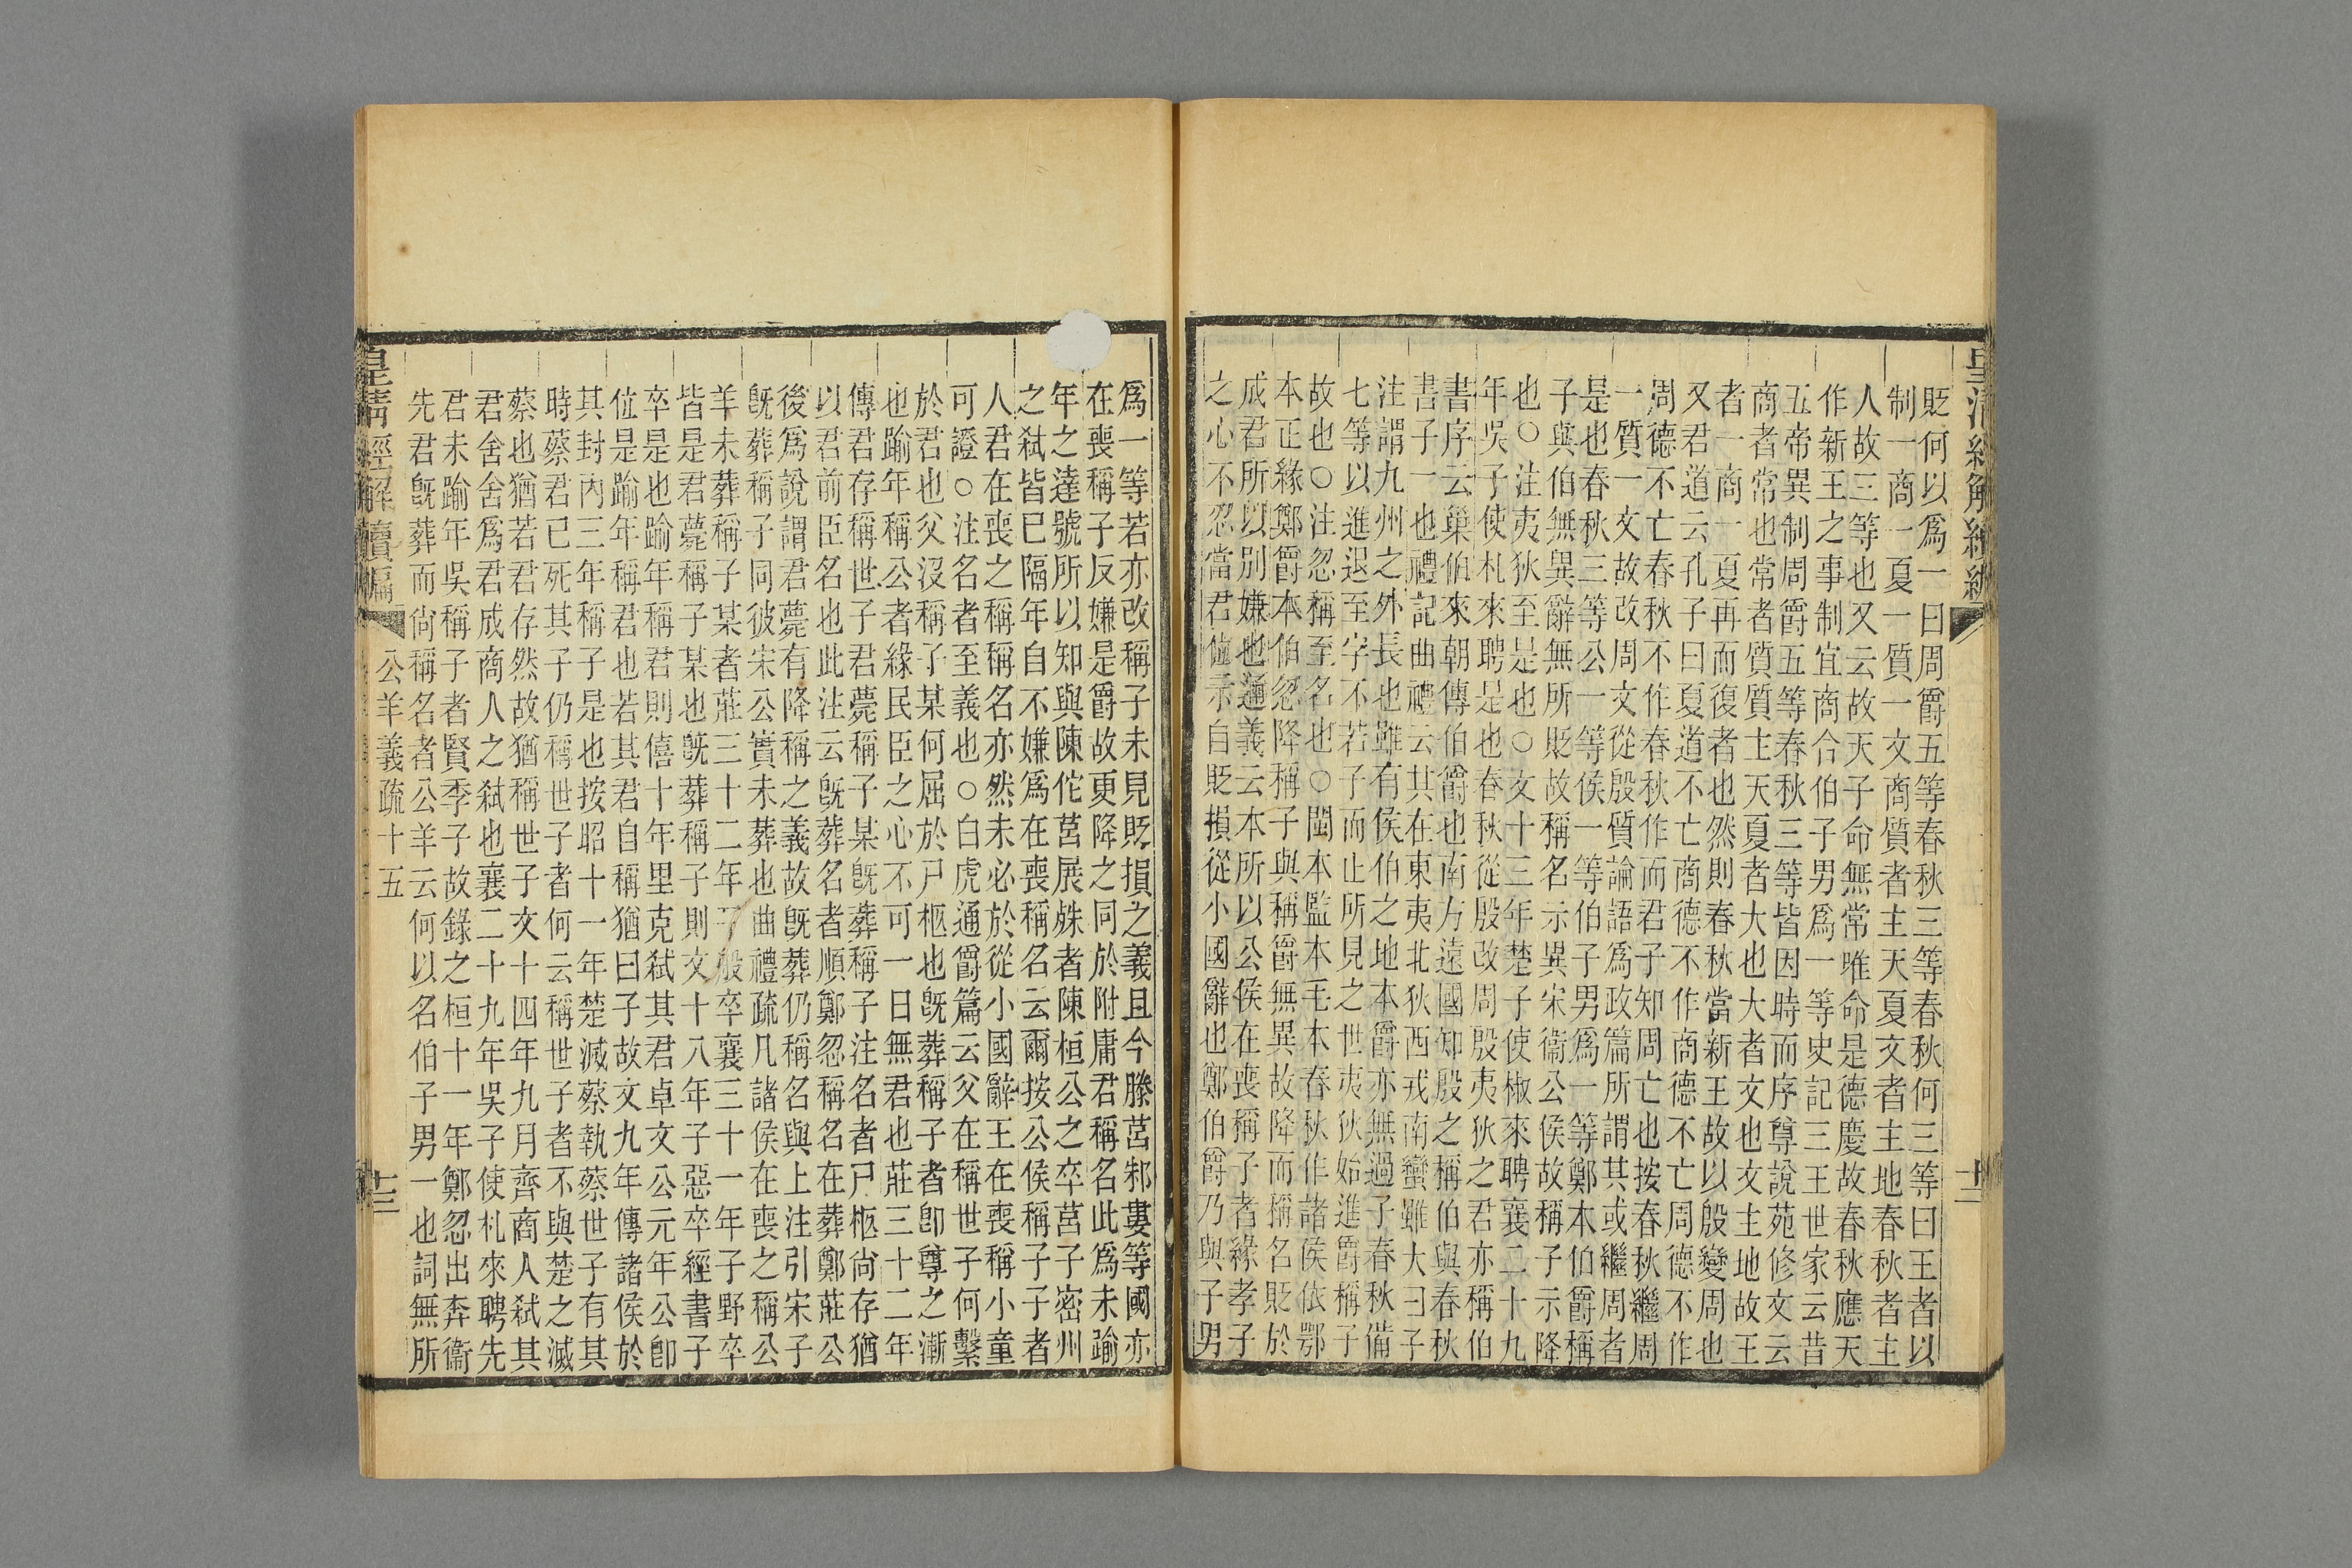 皇清經解續編
十三
貶何以爲一曰周爵五等春秋三等春秋何三等曰王者以
制一商一夏一質一文商質者主天夏文者主地春秋者主
人故三等也又云故天子命無常唯命是德慶故春秋應天
作新王之事制宜商合伯子男爲一等史記三王世家云昔
五帝異制周爵五等春秋三等皆因時而序尊說苑修文云
商者常也常者質質主天夏者大也大者文也文主地故王
者一商一夏再而復者也然則春秋當新王故以殷變周也
又君道云孔子曰夏道不亡商德不作商德不亡周德不作
周德不亡春秋不作春秋作而君子知周亡也按春秋繼周
一質一文故改周文從殷質論語爲政篇所謂其或繼周者
是也春秋三等公一等侯一等伯子男爲一等鄭本伯爵稱
子與伯無異辭無所貶故稱名示異宋衞公侯故稱子示降
也○注夷狄至是也○文十三年楚子使椒來聘襄二十九
年吳子使札來聘是也春秋從殷改周殷夷狄之君亦稱伯
書序云巢伯來朝傳伯爵也南方遠國知殷之稱伯與春秋
書子一也禮記曲禮云其在東夷北狄西戎南蠻雖大曰子
注謂九州之外長也雖有侯伯之地本爵亦無過子春秋備
七等以進退至字不若子而止所見之世夷狄始進爵稱子
故也○注忽稱至名也○閩本監本毛本春秋作諸侯依鄂
本正緣鄭爵本伯忽降稱子與稱爵無異故降而稱名貶於
成君所以別嫌也通義云本所以公侯在喪稱子者緣孝子
之心不忍當君位示自貶損從小國辭也鄭伯爵乃與子男
爲一等若亦改稱子未見貶損之義且今滕莒邾婁等國亦
在喪稱子反嫌是爵故更降之同於附庸君稱名此爲未踰
年之達號所以知與陳佗莒展殊者陳桓公之卒莒子密州
之弑皆已隔年自不嫌爲在喪稱名云爾按公侯稱子子者
人君在喪之稱稱名亦然未必於從小國辭王在喪稱小童
可證○注名者至義也○白虎通爵篇云父在稱世子何繫
於君也父沒稱子某何屈於尸柩也旣葬稱子者卽尊之漸
也踰年稱公者緣民臣之心不可一日無君也莊三十二年
傳君存稱世子君薨稱子某旣葬稱子注名者尸柩尙存猶
以君前臣名也此注云旣葬名者順鄭忽稱名在葬鄭莊公
後爲說謂君薨有降稱之義故旣葬仍稱名與上注引宋子
旣葬稱子同彼宋公實未葬也曲禮疏凡諸侯在喪之稱公
羊未葬稱子某者莊三十二年子般卒襄三十一年子野卒
皆是君薨稱子某也旣葬稱子則文十八年子惡卒經書子
卒是也踰年稱君則僖十年里克弑其君卓文公元年公卽
位是踰年稱君也若其君自稱猶曰子故文九年傳諸侯於
其封內三年稱子是也按昭十一年楚滅蔡執蔡世子有其
時蔡君已死其子仍稱世子者何云稱世子者不與楚之滅
蔡也猶若君存然故猶稱世子文十四年九月齊商人弑其
君舍舍爲君成商人之弑也襄二十九年吳子使札來聘先
君未踰年吳稱子者賢季子故錄之桓十一年鄭忽出奔衞
先君旣葬而尙稱名者公羊云何以名伯子男一也詞無所
皇清經解續編
公羊義疏十五
十三